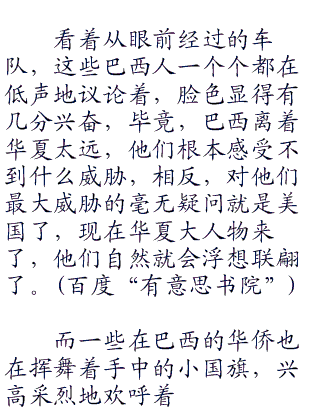 看着从眼前经过的车
队，这些巴西人一个个都在
低声地议论着，脸色显得有
几分兴奋，毕竟，巴西离着
华夏太远，他们根本感受不
到什么威胁，相反，对他们
最大威胁的毫无疑问就是美
国了，现在华夏大人物来
了，他们自然就会浮想联翩
了。(百度“有意思书院”)
而一些在巴西的华侨也
在挥舞着手中的小国旗，兴
高采烈地欢呼着